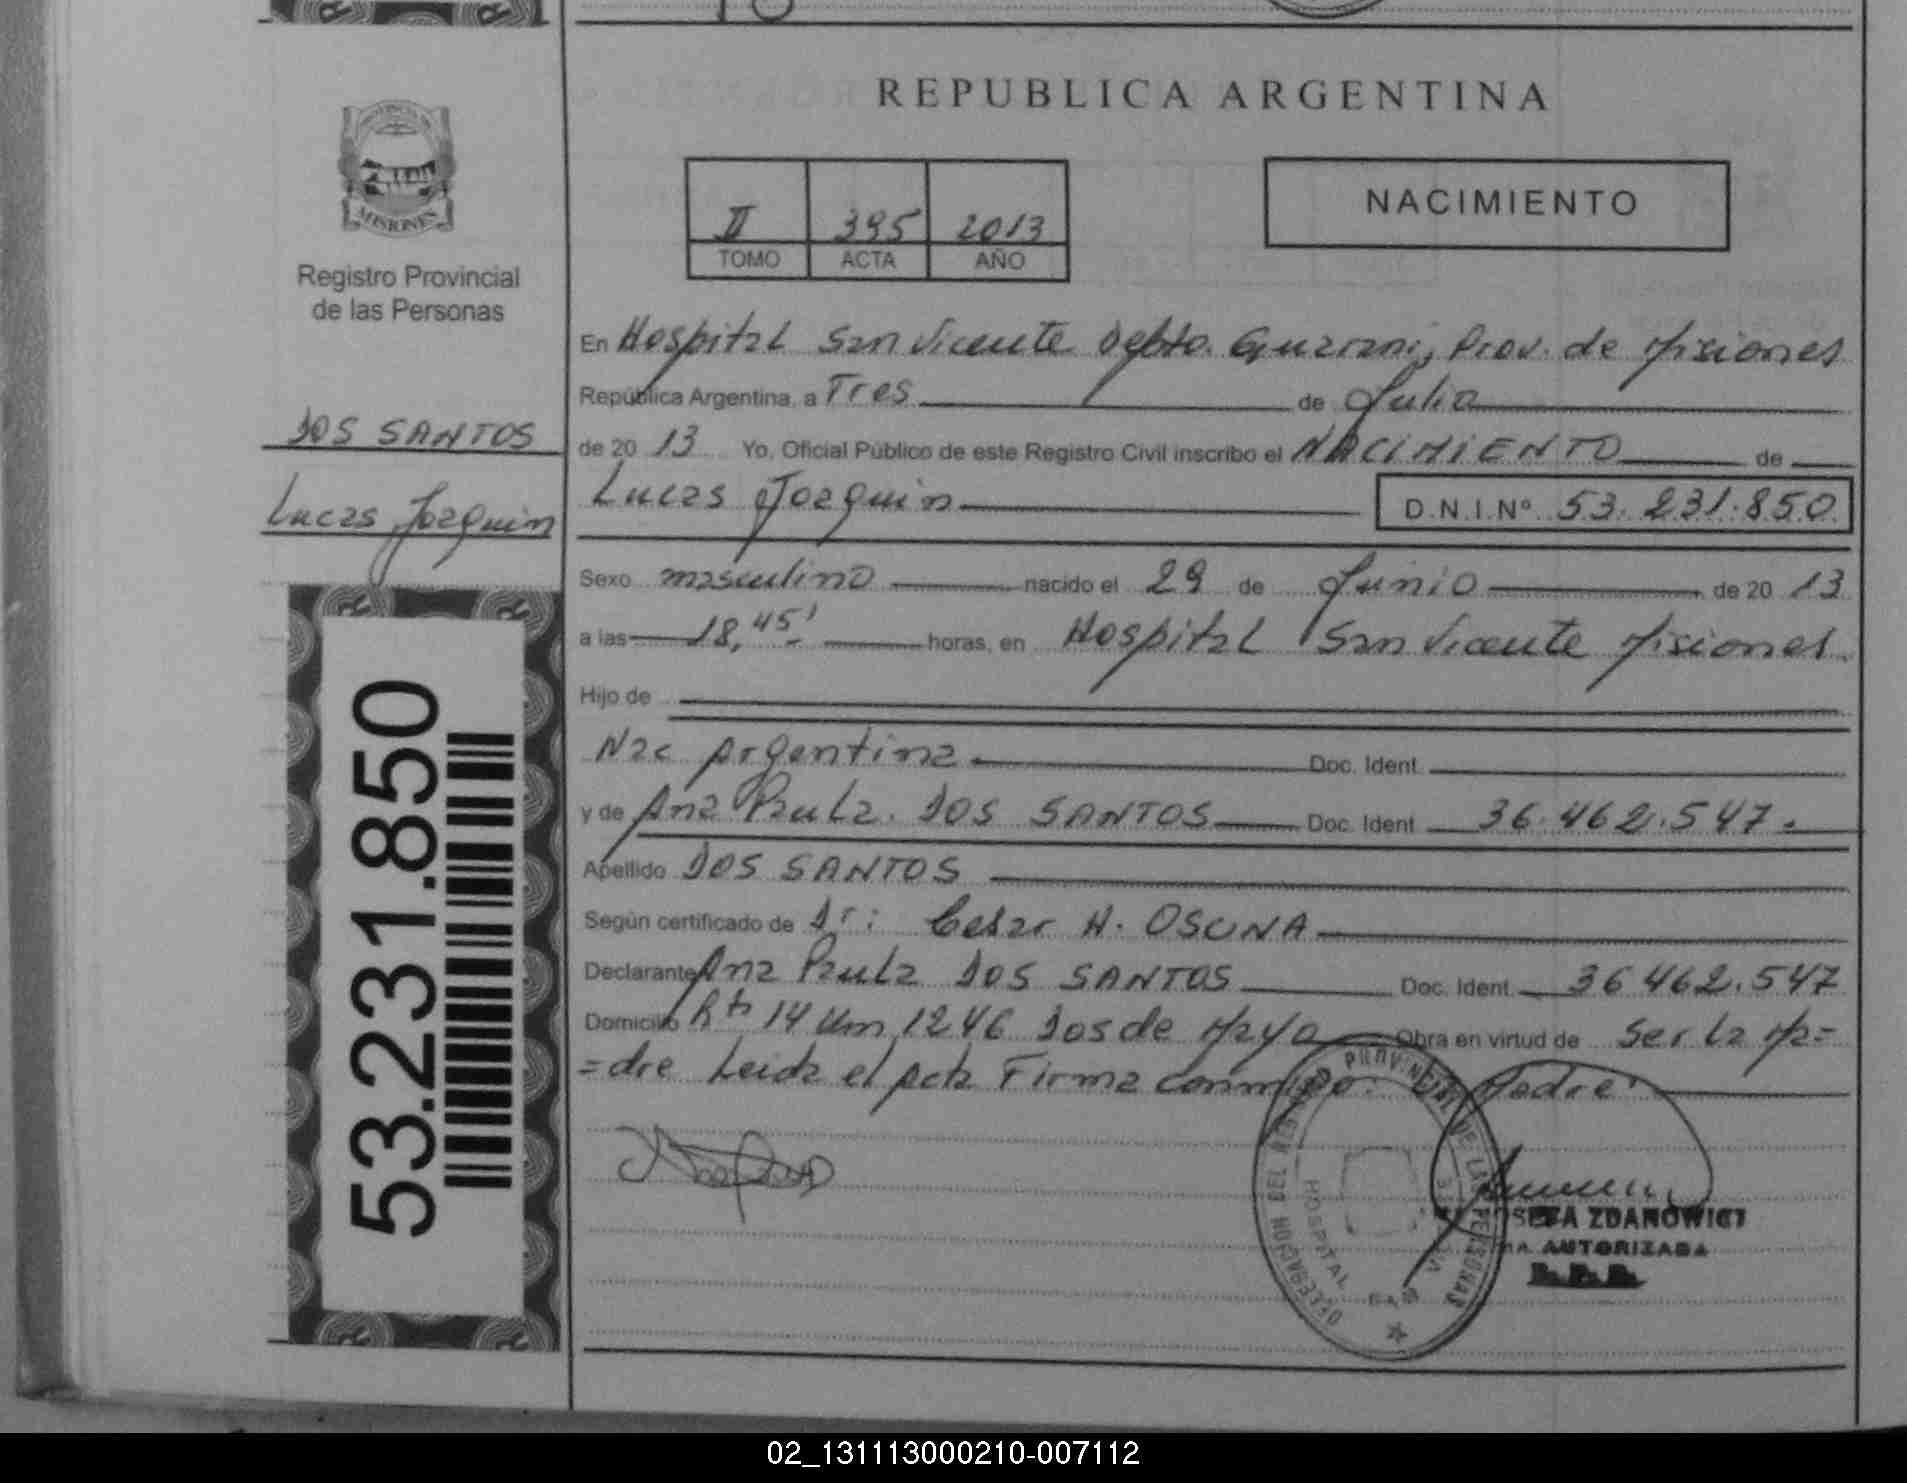 REPUBLICA ARGENTINA
MISIONES
Registro Provincial
de las Personas
II 395 2013
TOMO ACTA AÑO
NACIMIENTO
DOS SANTOS
Lucas Joaquin
53.231.850
En Hospital San Vicente Depto. Guarani, Prov. de Misiones
República Argentina, a Tres de Julio
de 20 13 Yo, Oficial Público de este Registro Civil inscribo el NACIMIENTO de
Lucas Joaquin D.N.I.Nº 53.231.850
Sexo masculino nacido el 29 de Junio de 20 13
a las 18,45' horas, en Hospital San Vicente Misiones.
Hijo de
Nac Argentina Doc. Ident.
y de Ana Paula DOS SANTOS Doc. Ident 36.462.547.
Apellido DOS SANTOS
Según certificado de Dr: Cesar H. OSUNA
Declarante Ana Paula DOS SANTOS Doc. Ident. 36 462.547
Domicilio Rta 14 Km 1246 Dos de Mayo Obra en virtud de Ser la Ma=
=dre Leida el Acta Firma conmigo: Madre
DELEGACION DEL PROVINCIAL DE LAS PERSONAS
HOSPITAL
ZDANOWICZ
AUTORIZADA
02_131113000210-007112